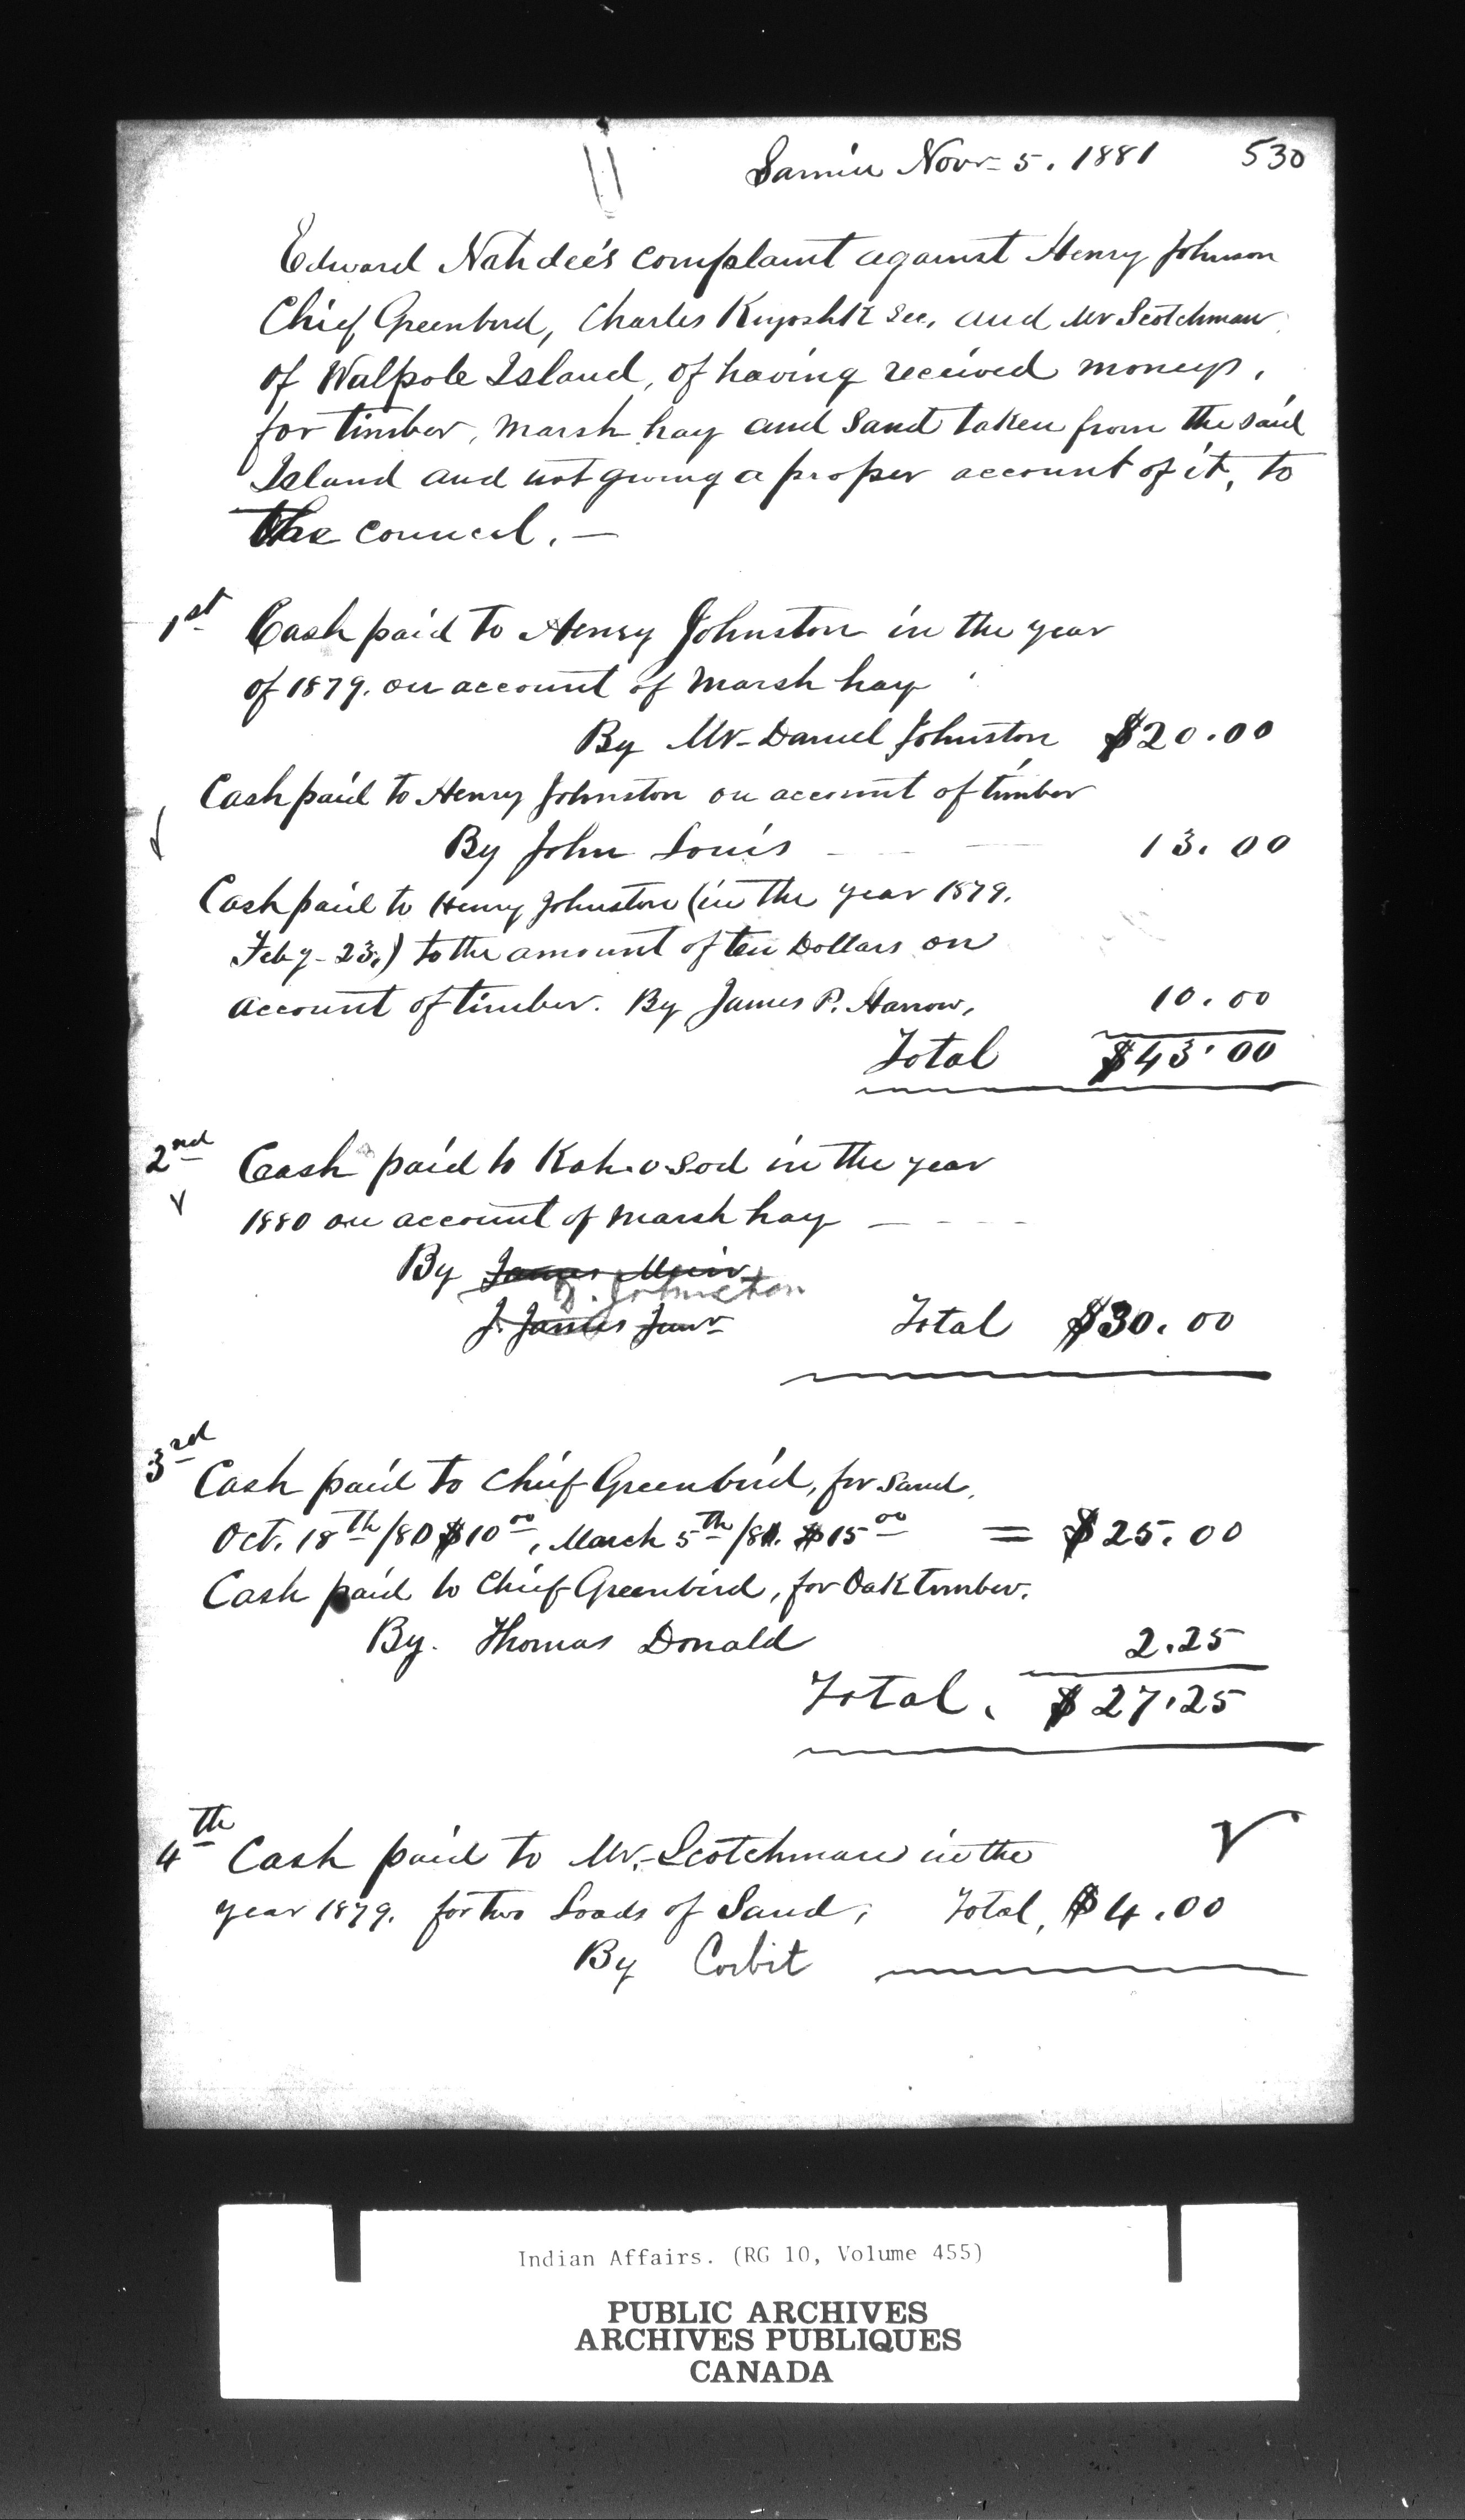 Sarnia Novr 5. 1881 530
Edward Nahdee's complaint against Henry Johnson
Chief Greenbird, Charles Kiyoshk Sec, and Mr Scotchman
of Walpole Island, of having received moneys,
for timber, marsh hay and Sand taken from the said
Island and not giving a proper account of it, to
the council. —
1st Cash paid to Henry Johnston in the year
of 1879. on account of marsh hay
By Mr- Daniel Johnston $20.00
Cash paid to Henry Johnston on account of timber
By John Louis 13.00
Cash paid to Henry Johnston (in the year 1879.
Feby- 23.) to the amount of ten Dollars on
account of timber. By James P. Harrow, 10.00
Total $43.00
2nd Cash paid to Kah.o.sod in the year
1880 on account of marsh hay — - - -
By James Muir
D. Johnston
J. James Junr Total $30.00
3rd Cash paid to Chief Greenbird, for Sand.
Oct. 18th/80 $10 00, March 5th/81. $15 00 = $25.00
Cash paid to Chief Greenbird, for Oak timber.
By. Thomas Donald 2.25
Total. $27.25
4th Cash paid to Mr.- Scotchman in the
year 1879. for two Loads of Sand, Total, $4.00
By Corbit
Indian Affairs. (RG 10, Volume 455)
PUBLIC ARCHIVES
ARCHIVES PUBLIQUES
CANADA